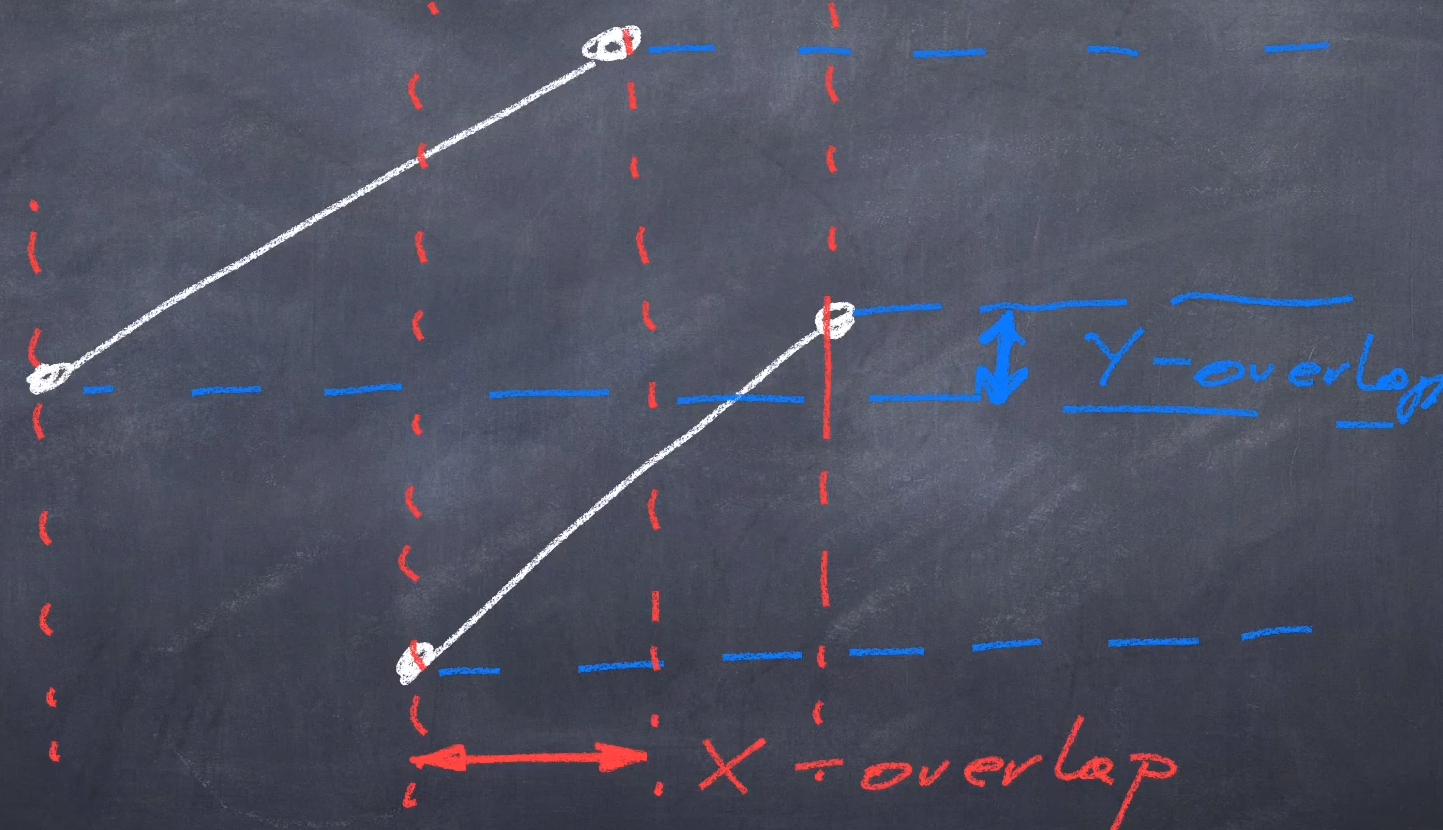 Y-overlap
X-overlap